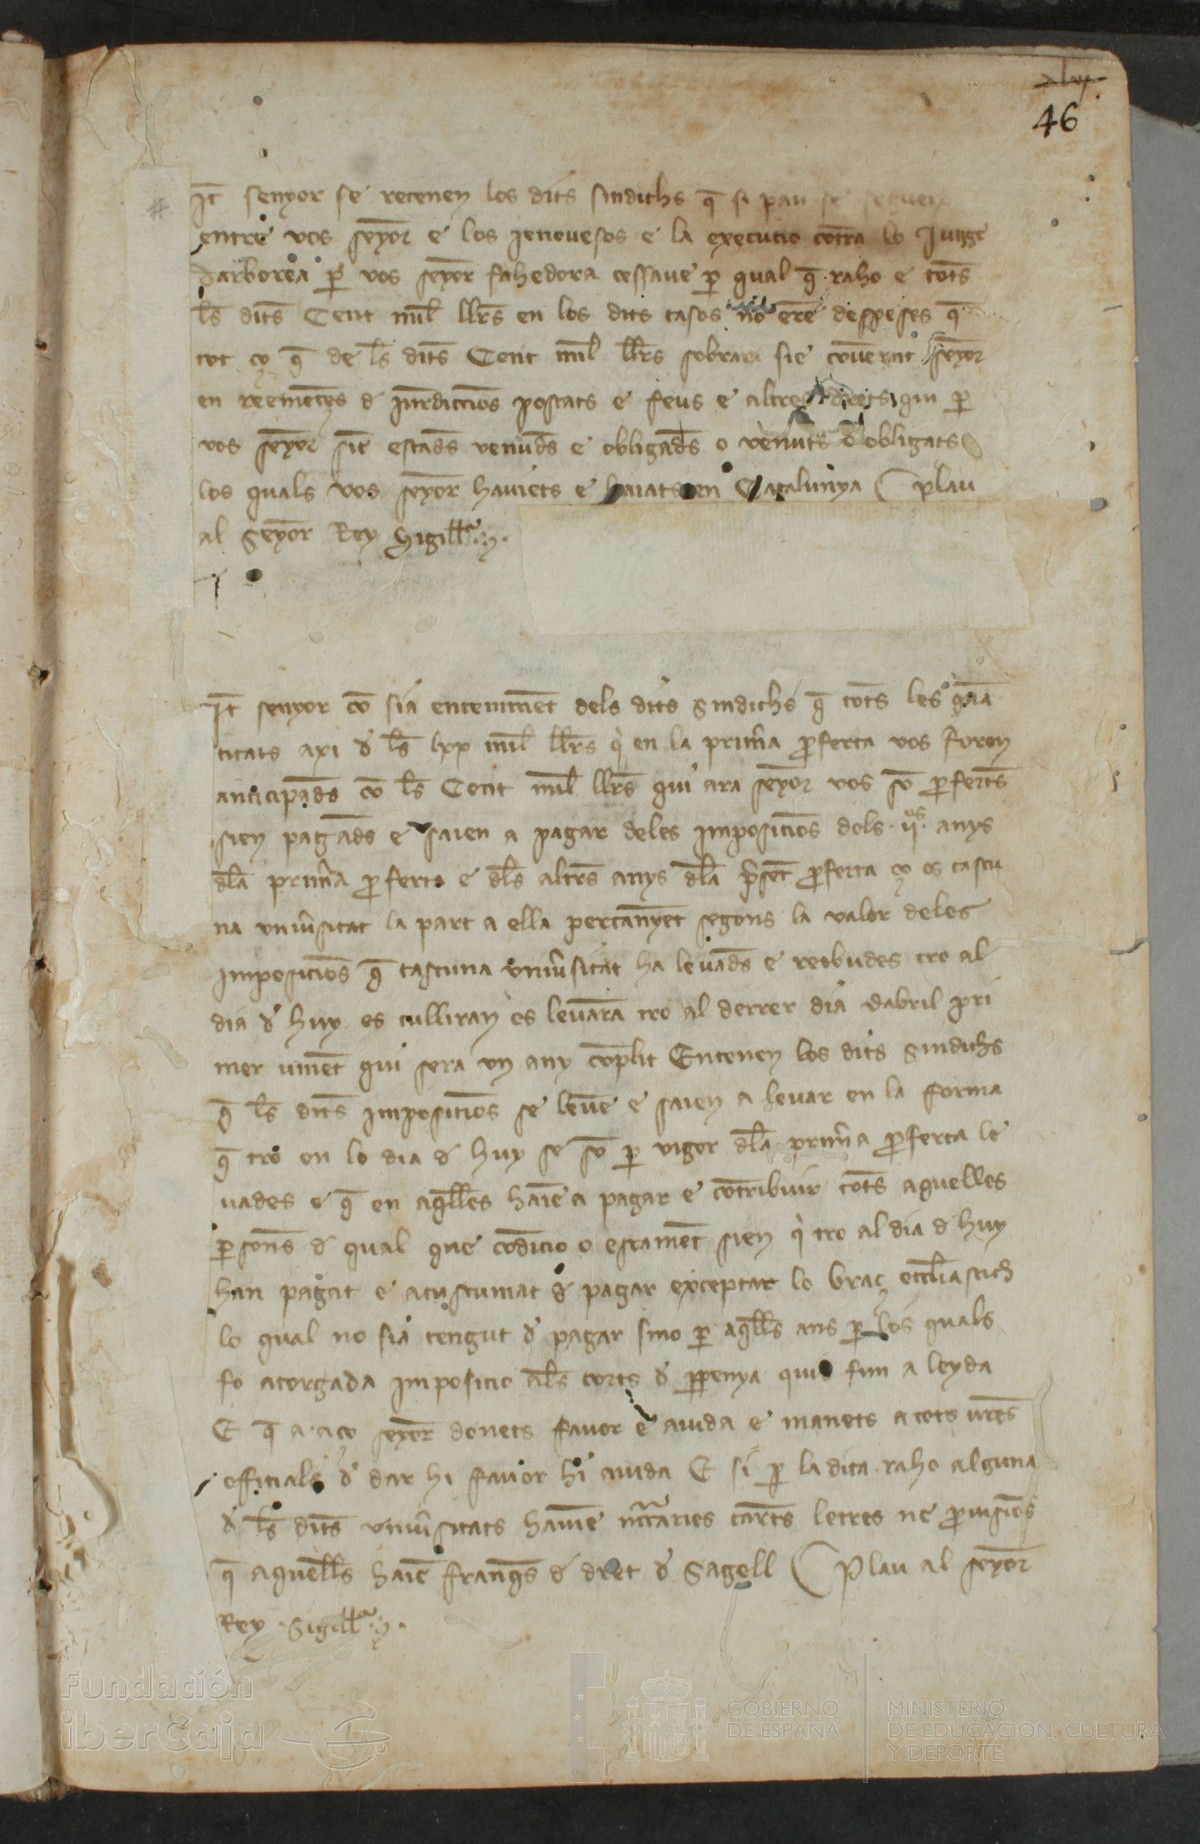 xlvj.
46
#
It senyor se retenen los dits sindichs q̄ si pau se segueix
entre vos seyor e los jenouesos e la execucio cōtra lo Jutge
darborea p̄ vos seyor fahedora cessaue p̄ qual q̄ raho e tots
ls dits Cent mil llrs en los dits casos no erē despeses q̄
tot ço q̄ de ls dits Cent mil llrs sobrara sie cōuertit seyor
en reemēces d jurdiccions postats e feus e altres drets qui p̄
vos seyor siē estads venuds e obligads o venuts o obligats
los quals vos seyor haviets e haiats en Catalunya Plau
al Seyor Rey Sigill
It senyor cō sia enteniment dels dits sindichs q̄ tots les quā
titats axi d ls lxx mil llrs q en la primā pferta vos foren
anticipads cō ls Cent mil llrs qui ara seyor vos sō pferts
sien pagads e saien a pagar deles imposicions dels ij anys
dla primā pferta e dls altrs anys dla psēt pferta ço es cascu
na vniūsitat la part a ella pertanyēt segons la valor deles
imposicions q̄ cascuna vniūsitat ha leuads e reebudes tro al
dia d huy es culliran es leuarā tro al derrer dia dabril pri
mer vinēt qui sera vn any cōplit Entenen los dits sindichs
q̄ ls dits imposicions se leuē e saien a leuar en la forma
q̄ tro en lo dia d huy se sō p̄ vigor dla primā pferta le
uades e q̄ en aqlls haiē a pagar e cōtribuir tots aquelles
p̄sons d qual que cōdicio o estamēt sien q tro al dia d huy
han pagat e acustumat d pagar exceptat lo braç ecclīastich
lo qual no sia tengut d pagar sino p̄ aqlls ans p̄ los quals
fo atorgada imposicio als corts d ppenya qui fin a leyda
E q̄ a aço seyor donets fauor e aiuda e manets a tots vrēs
officials d dar hi fauor hi aiuda E si p̄ la dita raho alguna
d ls dits vniūsitats hauiē ncc̄aries carts letres ne puisions
q̄ aquells haiē franqs d dret d Sagell Plau al seyor
Rey Sigill
Fundación
iberCaja
GOBIERNO
DE ESPAÑA
MINISTERIO
DE EDUCACIÓN, CULTURA
Y DEPORTE